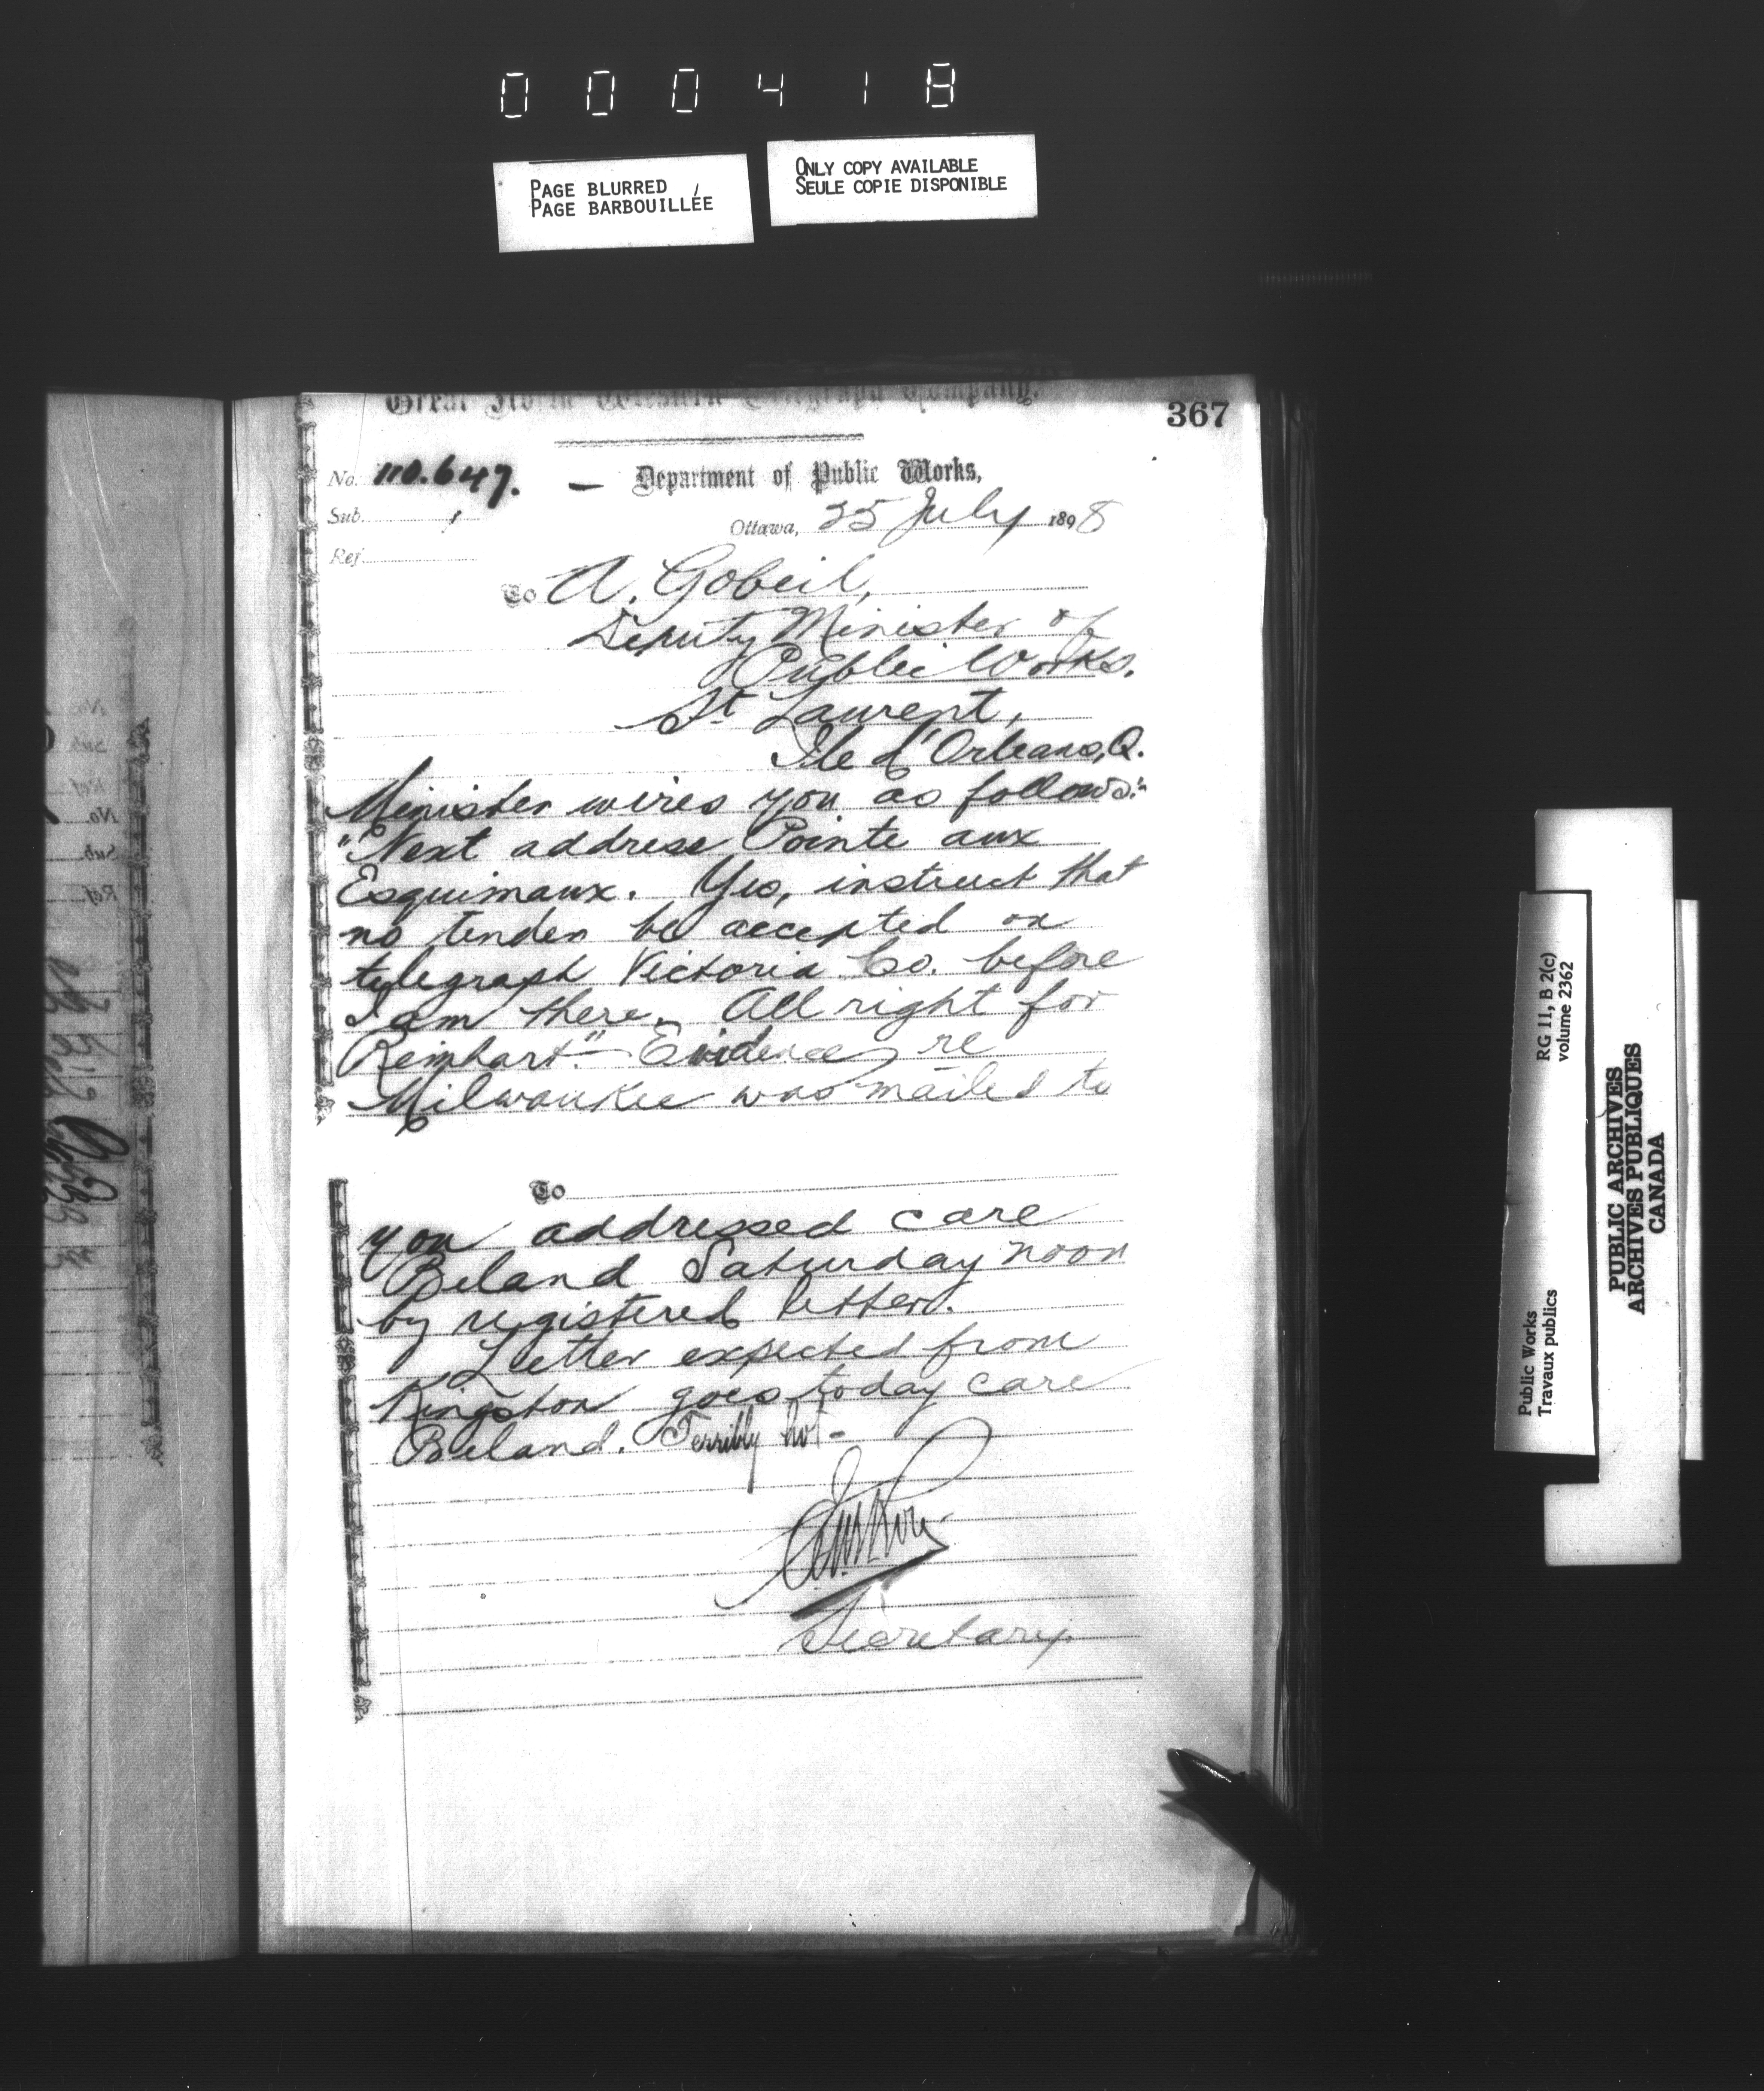 000418
PAGE BLURRED
PAGE BARBOUILLÉE
ONLY COPY AVAILABLE
SEULE COPIE DISPONIBLE
Great North Western Telegraph Company.
367
No. 110.647.
Department of Public Works,
Sub.
Ottawa, 25 July 1898
Ref.
To A. Gobeil,
Deputy Minister of
Public Works.
St Laurent,
Ile d'Orleans, Q.
Minister wires you as follows:-
"Next address Pointe aux
Esquimaux. Yes, instruct that
no tender be accepted on
telegraph Victoria Co. before
I am there. All right for
Reinhart." Evidence re
Milwaukee was mailed to
To
you addressed care
Beland Saturday noon
by registered letter.
Letter expected from
Kingston goes today care
Beland. Terribly hot-
Secretary.
RG 11, B 2(c)
volume 2362
Public Works
Travaux publics
PUBLIC ARCHIVES
ARCHIVES PUBLIQUES
CANADA